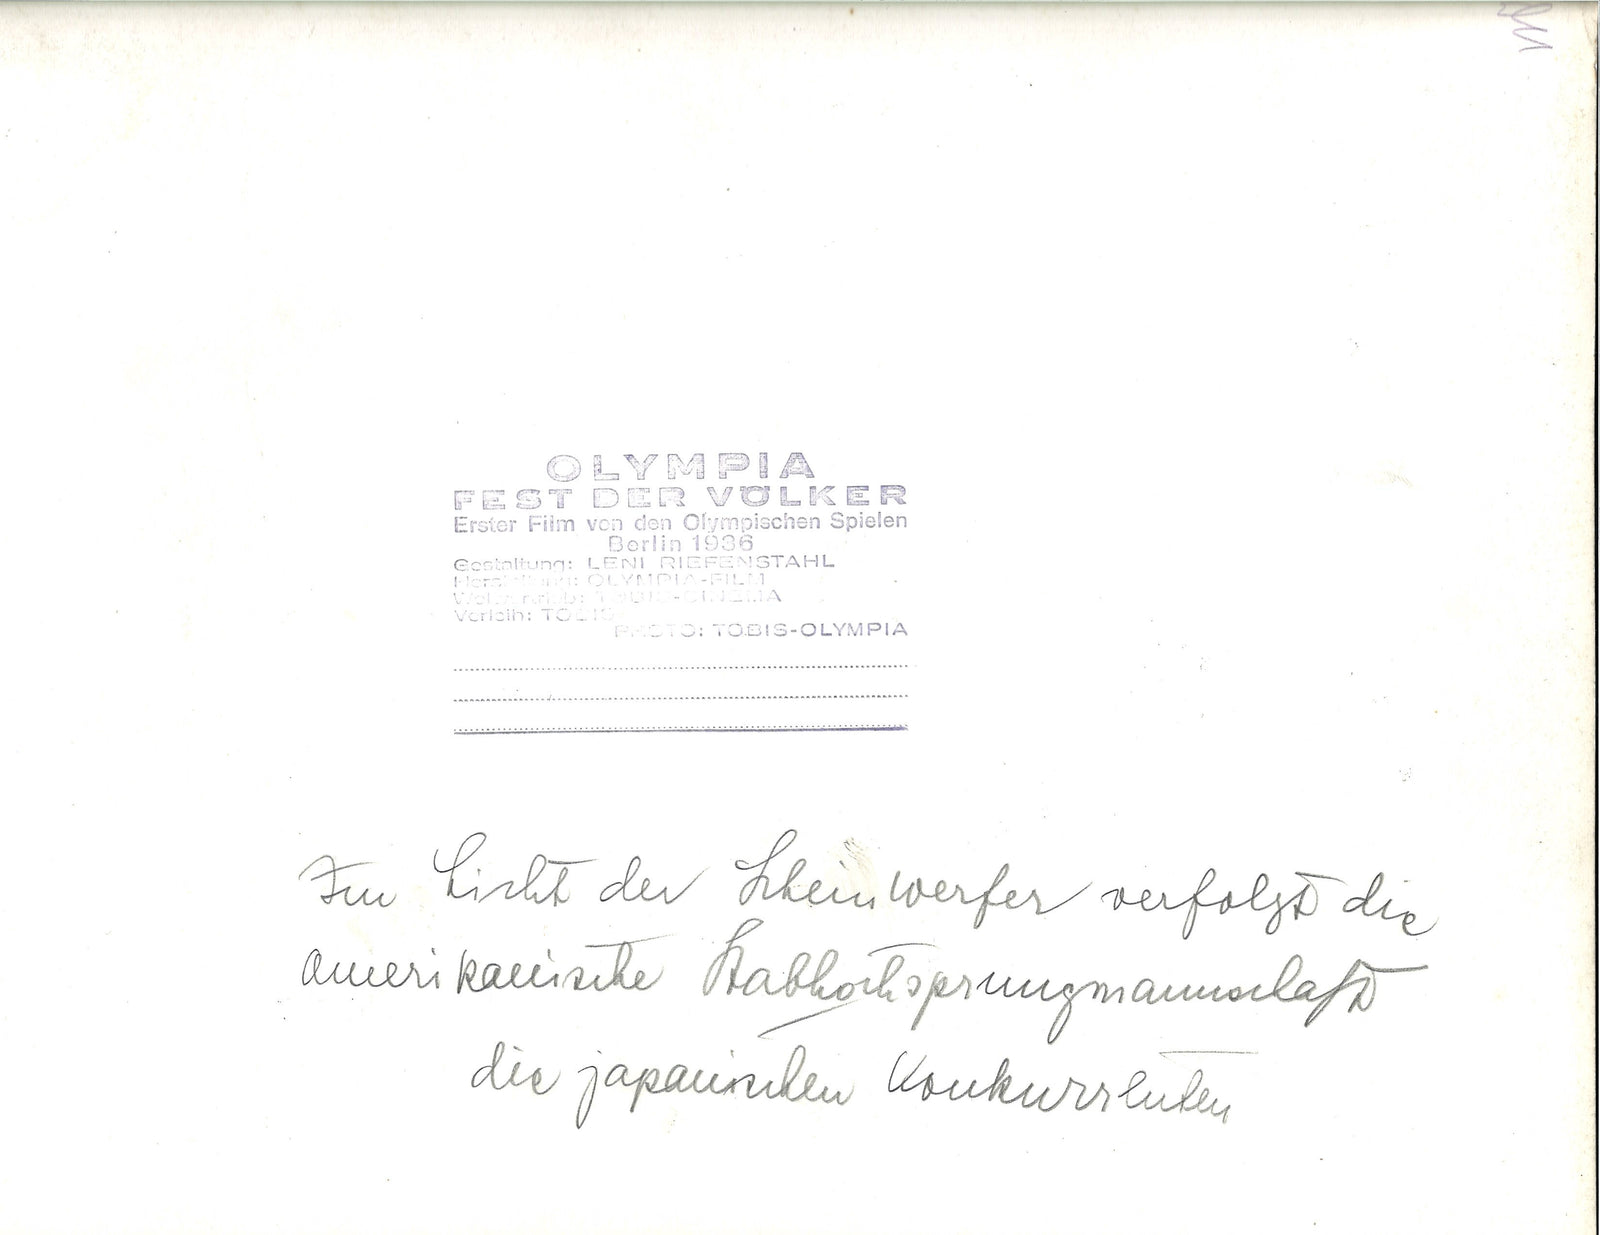 OLYMPIA
FEST DER VÖLKER
Erster Film von den Olympischen Spielen
Berlin 1936
Gestaltung: LENI RIEFENSTAHL
Herstellung: OLYMPIA-FILM
Weltvertrieb: TOBIS-CINEMA
Verleih: TOBIS
PHOTO: TOBIS-OLYMPIA
Im Licht der Scheinwerfer verfolgt die
amerikanische Stabhochsprungmannschaft
die japanischen Konkurrenten